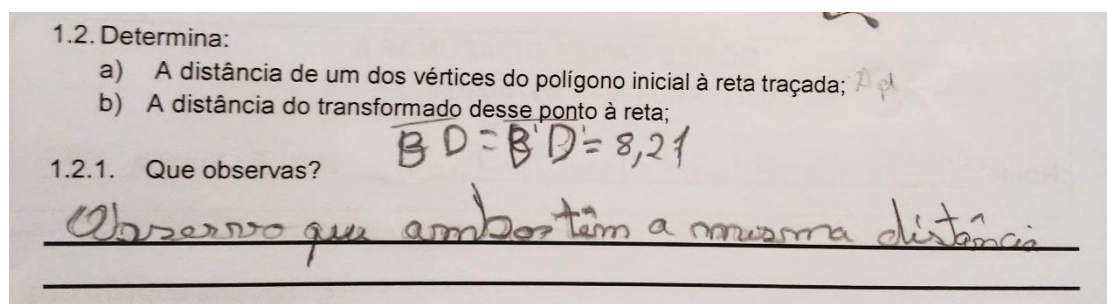 1.2. Determina:
a) A distância de um dos vértices do polígono inicial à reta traçada;
b) A distância do transformado desse ponto à reta;
BD = B'D' = 8,21
1.2.1. Que observas?
Observo que ambos têm a mesma distância